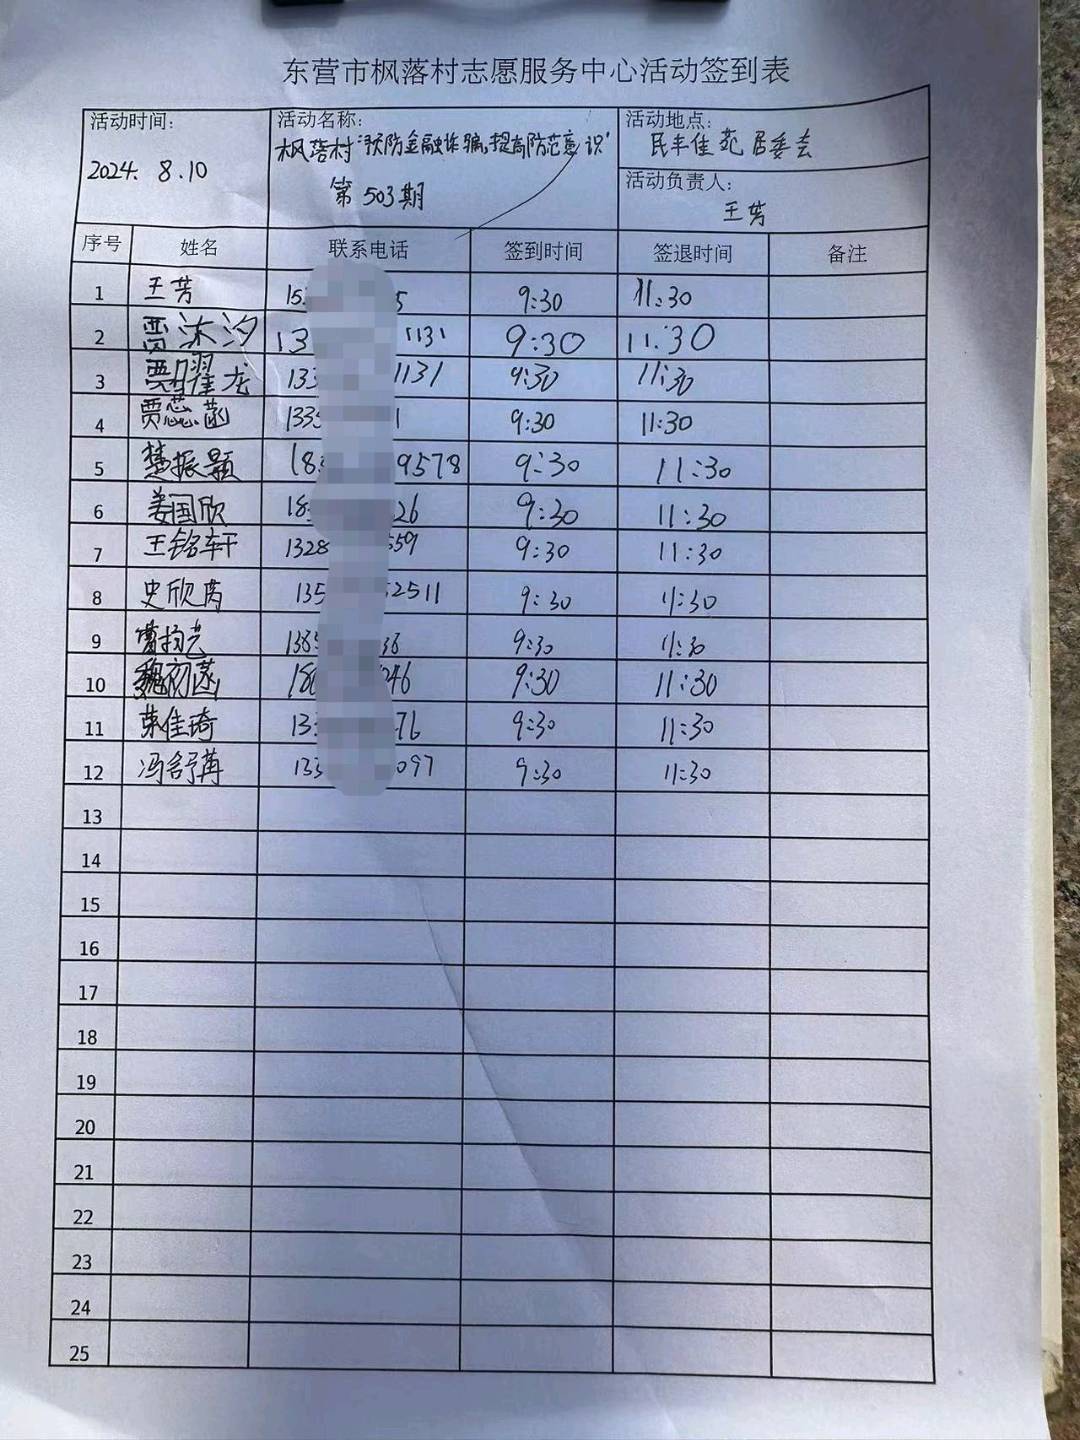 东营市枫落村志愿服务中心活动签到表
活动时间:
2024. 8.10
活动名称:
枫落村"预防金融诈骗,提高防范意识"
第503期
活动地点:
民丰佳苑居委会
活动负责人:
王芳
序号 姓名 联系电话 签到时间 签退时间 备注
1 王芳 15 5 9:30 11:30
2 贾沐汐 13 1131 9:30 11:30
3 贾耀龙 133 1131 9:30 11:30
4 贾蕊菡 133 1 9:30 11:30
5 楚振颢 18 9578 9:30 11:30
6 姜国欣 18 26 9:30 11:30
7 王铭轩 1328 559 9:30 11:30
8 史欣芮 135 2511 9:30 11:30
9 138 36 9:30 11:30
10 魏初菡 18 046 9:30 11:30
11 荣佳琦 13 76 9:30 11:30
12 冯舒苒 133 097 9:30 11:30
13
14
15
16
17
18
19
20
21
22
23
24
25